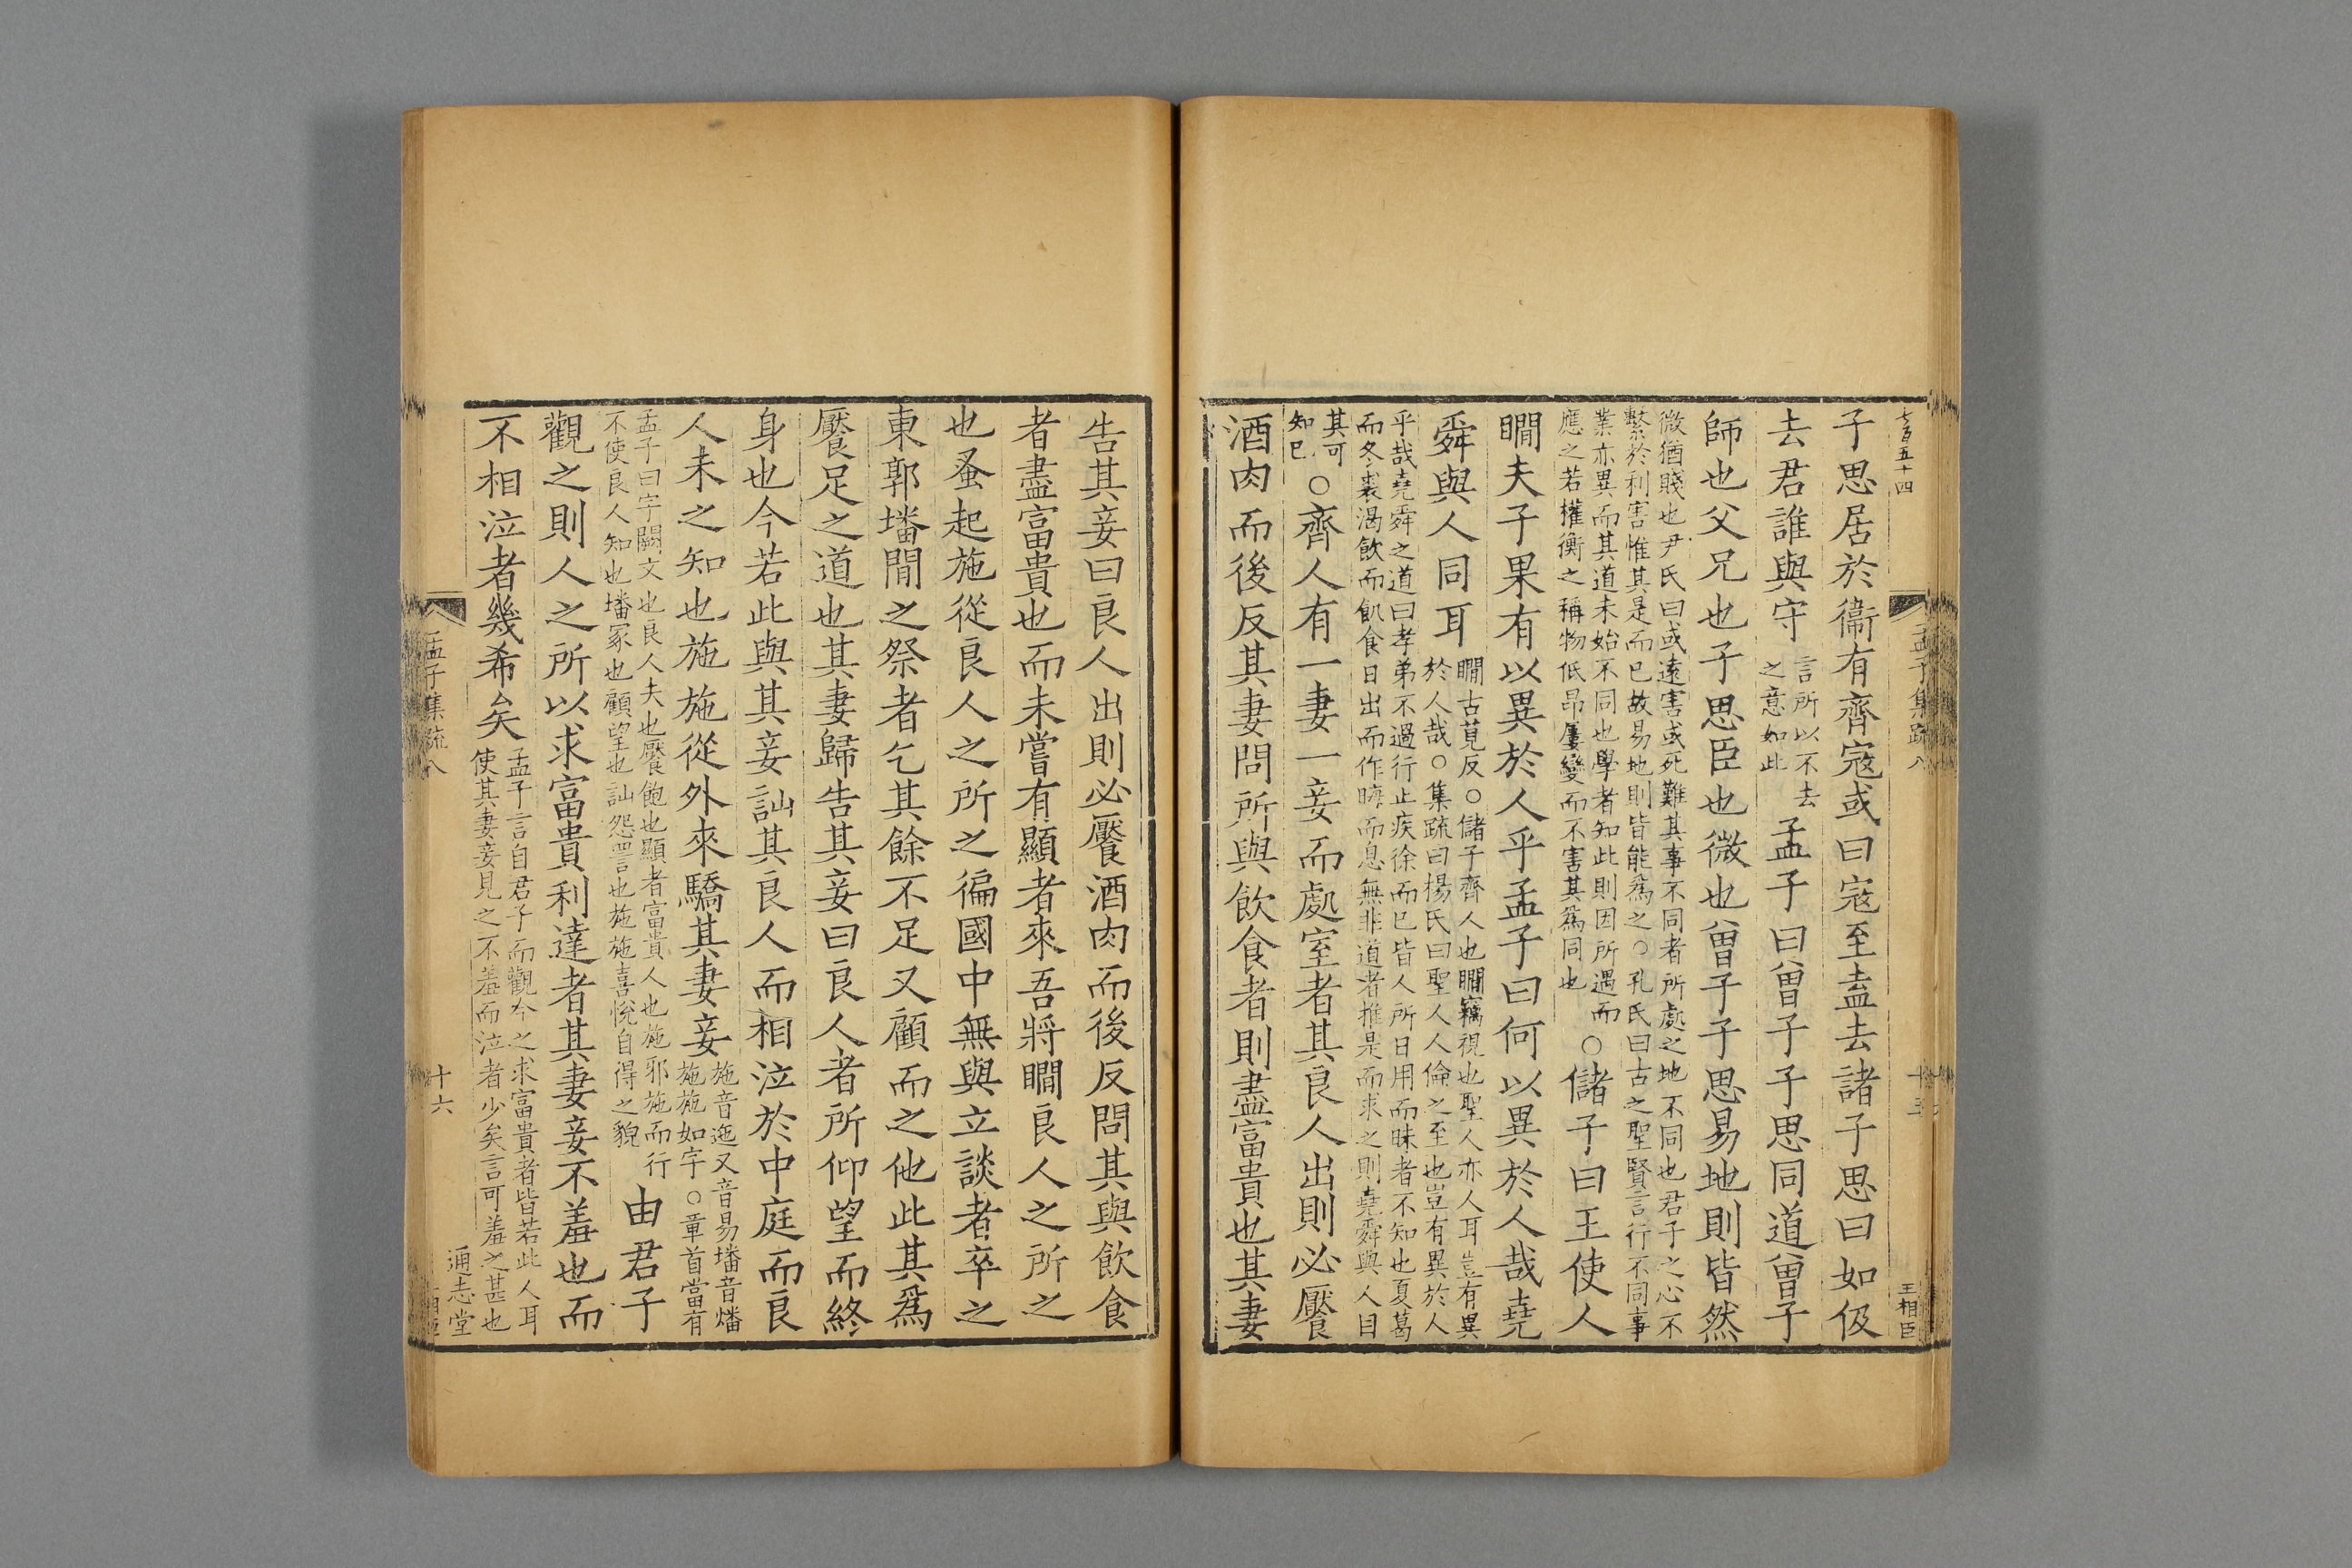 七百五十四
孟子集疏八
王相臣
子思居於衞有齊寇或曰寇至盍去諸子思曰如伋
去君誰與守言所以不去之意如此孟子曰曾子子思同道曾子
師也父兄也子思臣也微也曾子子思易地則皆然
微猶賤也尹氏曰或遠害或死難其事不同者所處之地不同也君子之心不
繫於利害惟其是而已故易地則皆能爲之○孔氏曰古之聖賢言行不同事
業亦異而其道未始不同也學者知此則因所遇而
應之若權衡之稱物低昻屢變而不害其爲同也
○儲子曰王使人
瞷夫子果有以異於人乎孟子曰何以異於人哉堯
舜與人同耳
瞷古莧反○儲子齊人也瞷竊視也聖人亦人耳豈有異
於人哉○集疏曰楊氏曰聖人人倫之至也豈有異於人
乎哉堯舜之道曰孝弟不過行止疾徐而已皆人所日用而昧者不知也夏葛
而冬裘渴飮而飢食日出而作晦而息無非道者推是而求之則堯舜與人目
其可
知已
○齊人有一妻一妾而處室者其良人出則必饜
酒肉而後反其妻問所與飮食者則盡富貴也其妻
告其妾曰良人出則必饜酒肉而後反問其與飮食
者盡富貴也而未嘗有顯者來吾將瞷良人之所之
也蚤起施從良人之所之徧國中無與立談者卒之
東郭墦閒之祭者乞其餘不足又顧而之他此其爲
饜足之道也其妻歸告其妾曰良人者所仰望而終
身也今若此與其妾訕其良人而相泣於中庭而良
人未之知也施施從外來驕其妻妾
施音迤又音易墦音燔
施施如字○章首當有
孟子曰字闕文也良人夫也饜飽也顯者富貴人也施邪施而行
不使良人知也墦冢也顧望也訕怨詈也施施喜悅自得之貌
由君子
觀之則人之所以求富貴利達者其妻妾不羞也而
不相泣者幾希矣
孟子言自君子而觀今之求富貴者皆若此人耳
使其妻妾見之不羞而泣者少矣言可羞之甚也
孟子集疏八
十六
通志堂